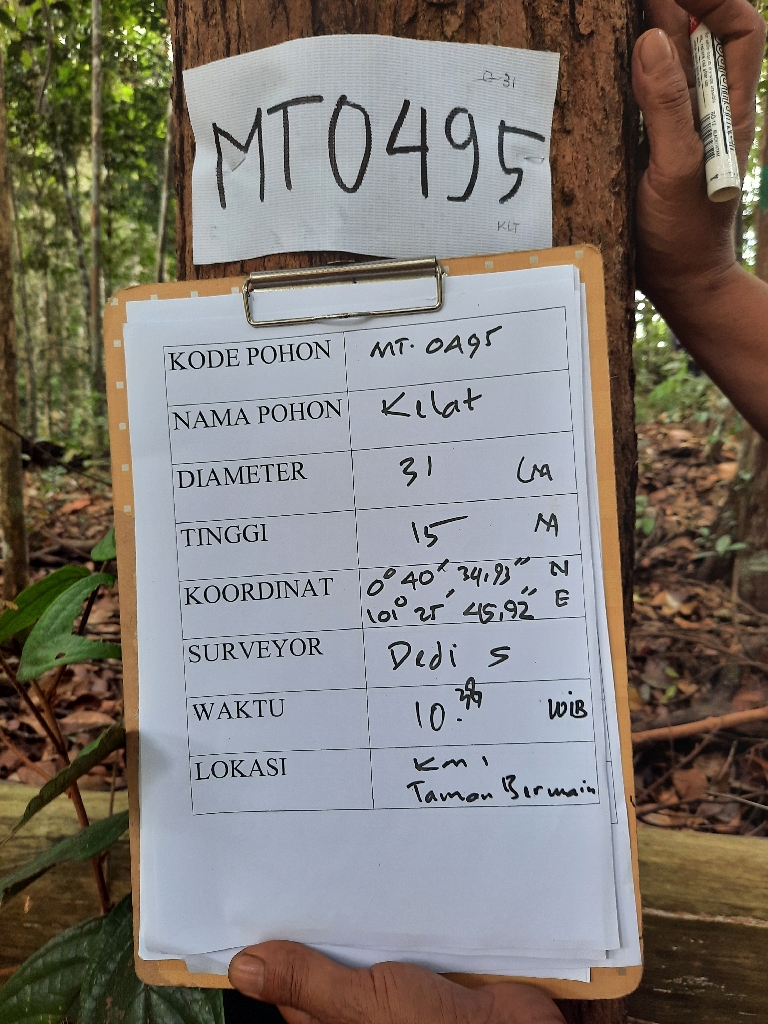 D 31
MT0495
KLT
KODE POHON MT. 0495
NAMA POHON Kelat
DIAMETER 31 CM
TINGGI 15 M
KOORDINAT 0° 40' 34,93" N
101° 25' 45,92" E
SURVEYOR Dedi S
WAKTU 10. WIB
LOKASI Km 1
Taman Bermain